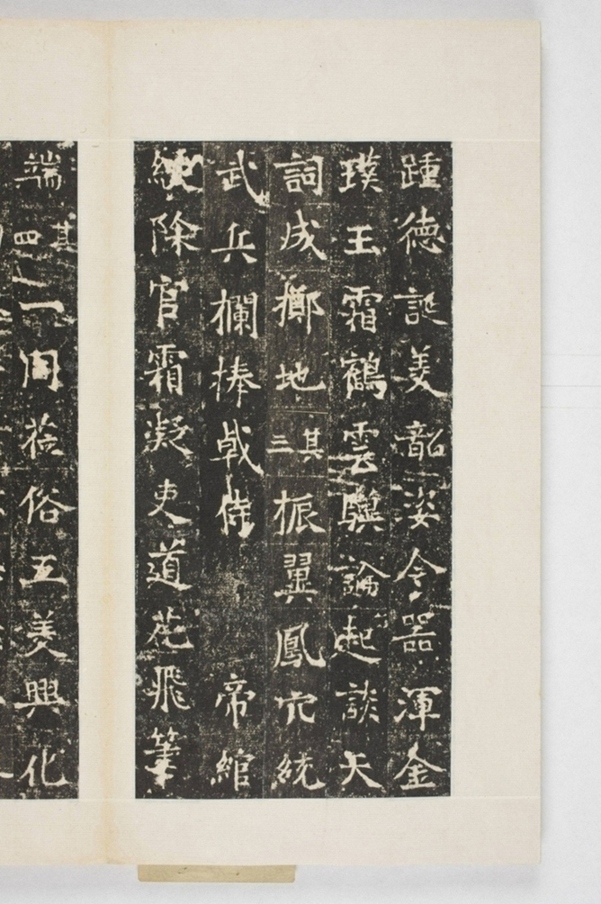 踵德誕美韶姿令器渾金
璞王霜鶴雲驥論起談天
詞成擲地其三振翼鳳穴統
武兵欄捧戟侍　帝綰
除官霜凝吏道花飛筆
端其四一同莅俗五美興化